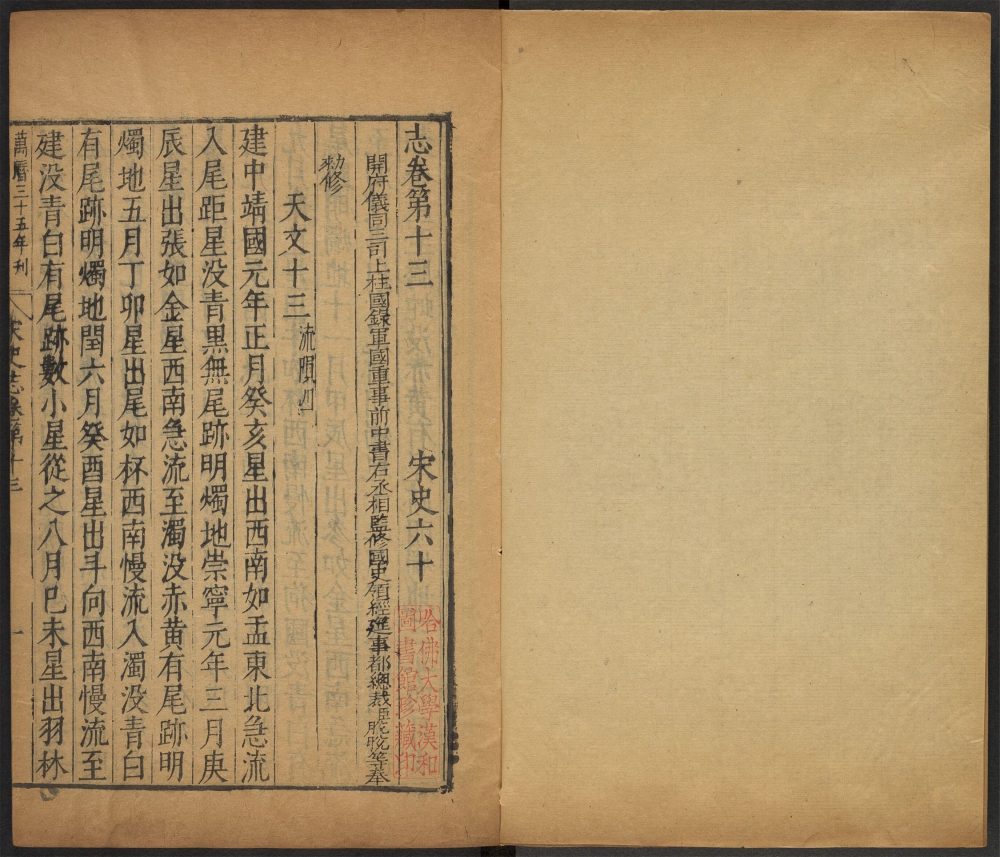 志卷第十三 宋史六十
開府儀同三司上柱國錄軍國重事前中書右丞相監修國史領經筵事都總裁臣脫脫等奉
勑修
天文十三 流隕四
建中靖國元年正月癸亥星出西南如盂東北急流
入尾距星没青黑無尾跡明燭地崇寧元年三月庚
辰星出張如金星西南急流至濁没赤黃有尾跡明
燭地五月丁卯星出尾如杯西南慢流入濁没青白
有尾跡明燭地閏六月癸酉星出斗向西南慢流至
建没青白有尾跡數小星從之八月巳未星出羽林
萬曆三十五年刊 宋史志卷第十三 一
哈佛大學漢和
圖書館珍藏印